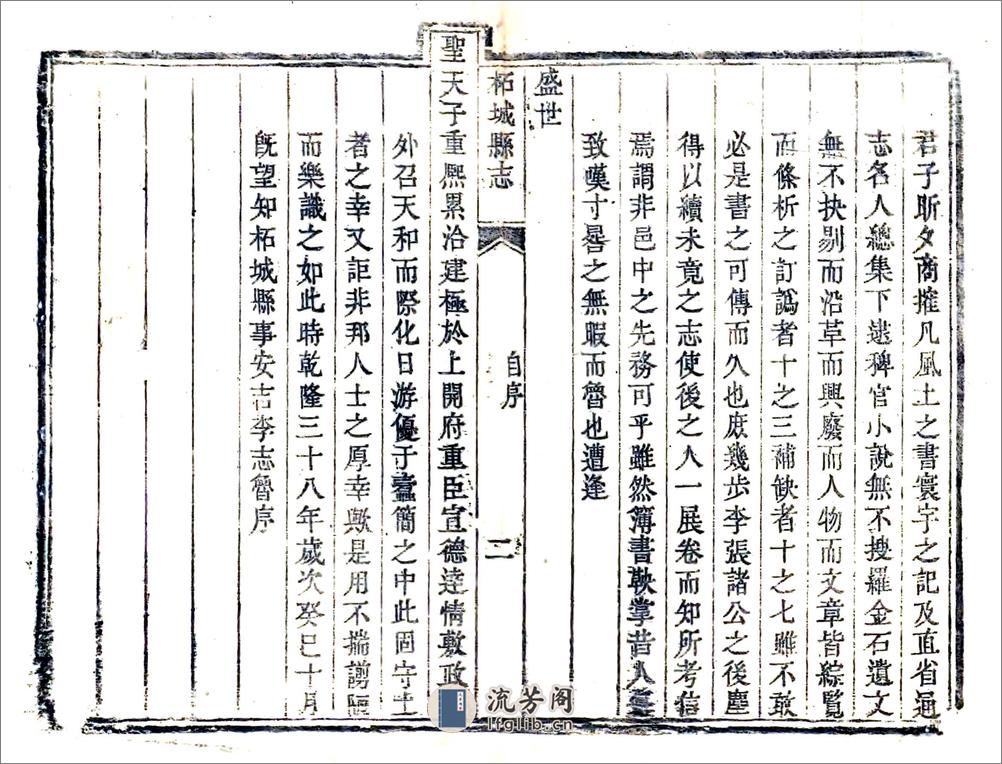 君子昕夕商搉凡風土之書寰宇之記及直省通
志名人總集下逮稗官小說無不搜羅金石遺文
無不抉剔而沿革而興廢而人物而文章皆綜覽
而條析之訂譌者十之三補缺者十之七雖不敢
必是書之可傳而久也庶幾步李張諸公之後塵
得以續未竟之志使後之人一展卷而知所考信
焉謂非邑中之先務可乎雖然簿書鞅掌昔人
致嘆寸晷之無暇而魯也遭逢
盛世
柘城縣志
自序
二
聖天子重熙累洽建極於上開府重臣宣德達情敷政
外召天和而際化日游優于蠹簡之中此固守土
者之幸又詎非邦人士之厚幸歟是用不揣謭陋
而樂識之如此時乾隆三十八年歲次癸巳十月
既望知柘城縣事安吉李志魯序
流芳阁
lfglib.cn